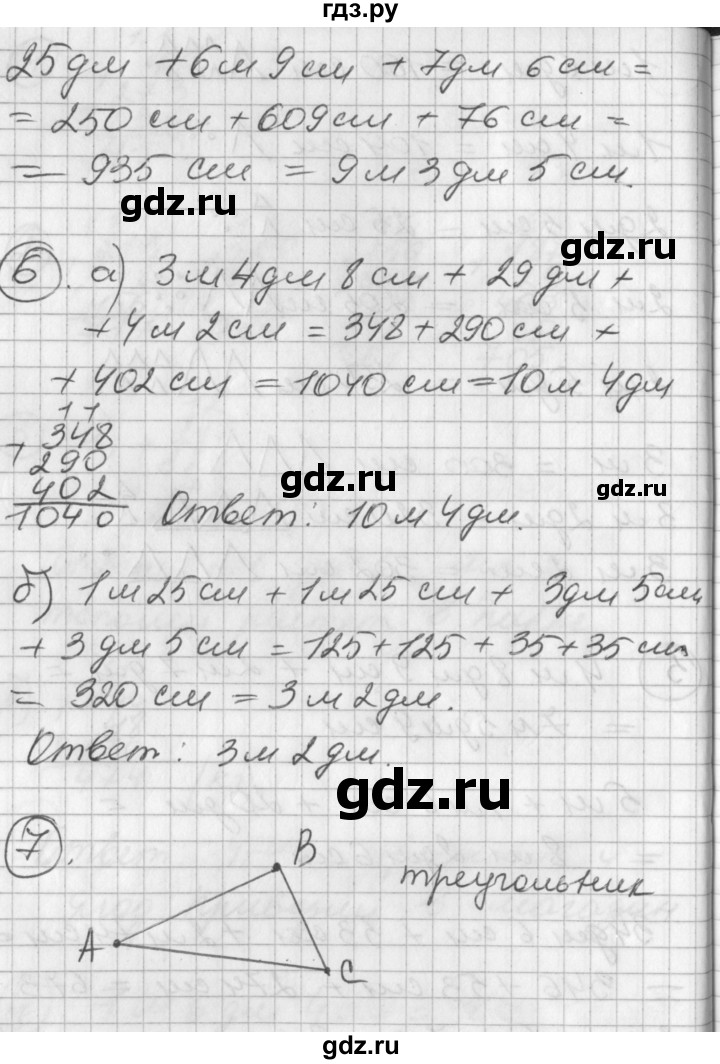 гдз.ру
25дм + 6м 9см + 7дм 6см =
= 250 см + 609см + 76 см =
= 935 см = 9м 3дм 5см.
gdz.ru
gdz.ru
6. а) 3м 4дм 8см + 29дм +
+ 4м 2см = 348 + 290см +
+ 402 см = 1040 см = 10м 4дм
11
+ 348
290
402
1040
gdz.ru
gdz.ru
Ответ: 10м 4дм.
б) 1м 25см + 1м 25см + 3дм 5см
+ 3дм 5см = 125 + 125 + 35 + 35см
= 320 см = 3м 2дм.
Ответ: 3м 2дм.
gdz.ru
7.
B
треугольник
A
C
gdz.ru
gdz.ru